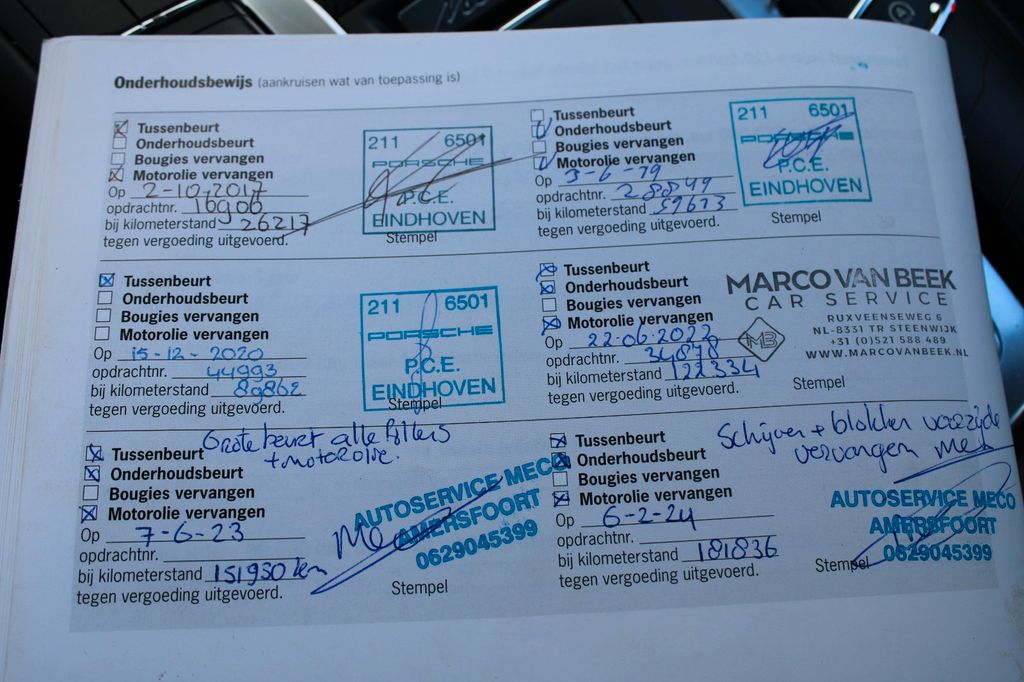 Onderhoudsbewijs (aankruisen wat van toepassing is)
Tussenbeurt
Onderhoudsbeurt
Bougies vervangen
Motorolie vervangen
Op 2-10-2017
opdrachtnr. 16906
bij kilometerstand 26217
tegen vergoeding uitgevoerd.
211 6501
PORSCHE
P.C.E.
EINDHOVEN
Stempel
Tussenbeurt
Onderhoudsbeurt
Bougies vervangen
Motorolie vervangen
Op 3-6-19
opdrachtnr. 28849
bij kilometerstand 59673
tegen vergoeding uitgevoerd.
211 6501
PORSCHE
P.C.E.
EINDHOVEN
Stempel
Tussenbeurt
Onderhoudsbeurt
Bougies vervangen
Motorolie vervangen
Op 15-12-2020
opdrachtnr. 44993
bij kilometerstand 89862
tegen vergoeding uitgevoerd.
211 6501
PORSCHE
P.C.E.
EINDHOVEN
Stempel
Tussenbeurt
Onderhoudsbeurt
Bougies vervangen
Motorolie vervangen
Op 22-06-2022
opdrachtnr. 34878
bij kilometerstand 122334
tegen vergoeding uitgevoerd.
MARCO VAN BEEK
CAR SERVICE
MB
RUXVEENSEWEG 6
NL-8331 TR STEENWIJK
+31 (0)521 588 489
WWW.MARCOVANBEEK.NL
Stempel
Grote beurt alle filters
+ motorolie.
Tussenbeurt
Onderhoudsbeurt
Bougies vervangen
Motorolie vervangen
Op 7-6-23
opdrachtnr.
bij kilometerstand 151930 km
tegen vergoeding uitgevoerd.
AUTOSERVICE MECO
AMERSFOORT
0629045399
Stempel
Schijven + blokken voorzijde
vervangen
Tussenbeurt
Onderhoudsbeurt
Bougies vervangen
Motorolie vervangen
Op 6-2-24
opdrachtnr.
bij kilometerstand 181836
tegen vergoeding uitgevoerd.
AUTOSERVICE MECO
AMERSFOORT
0629045399
Stempel